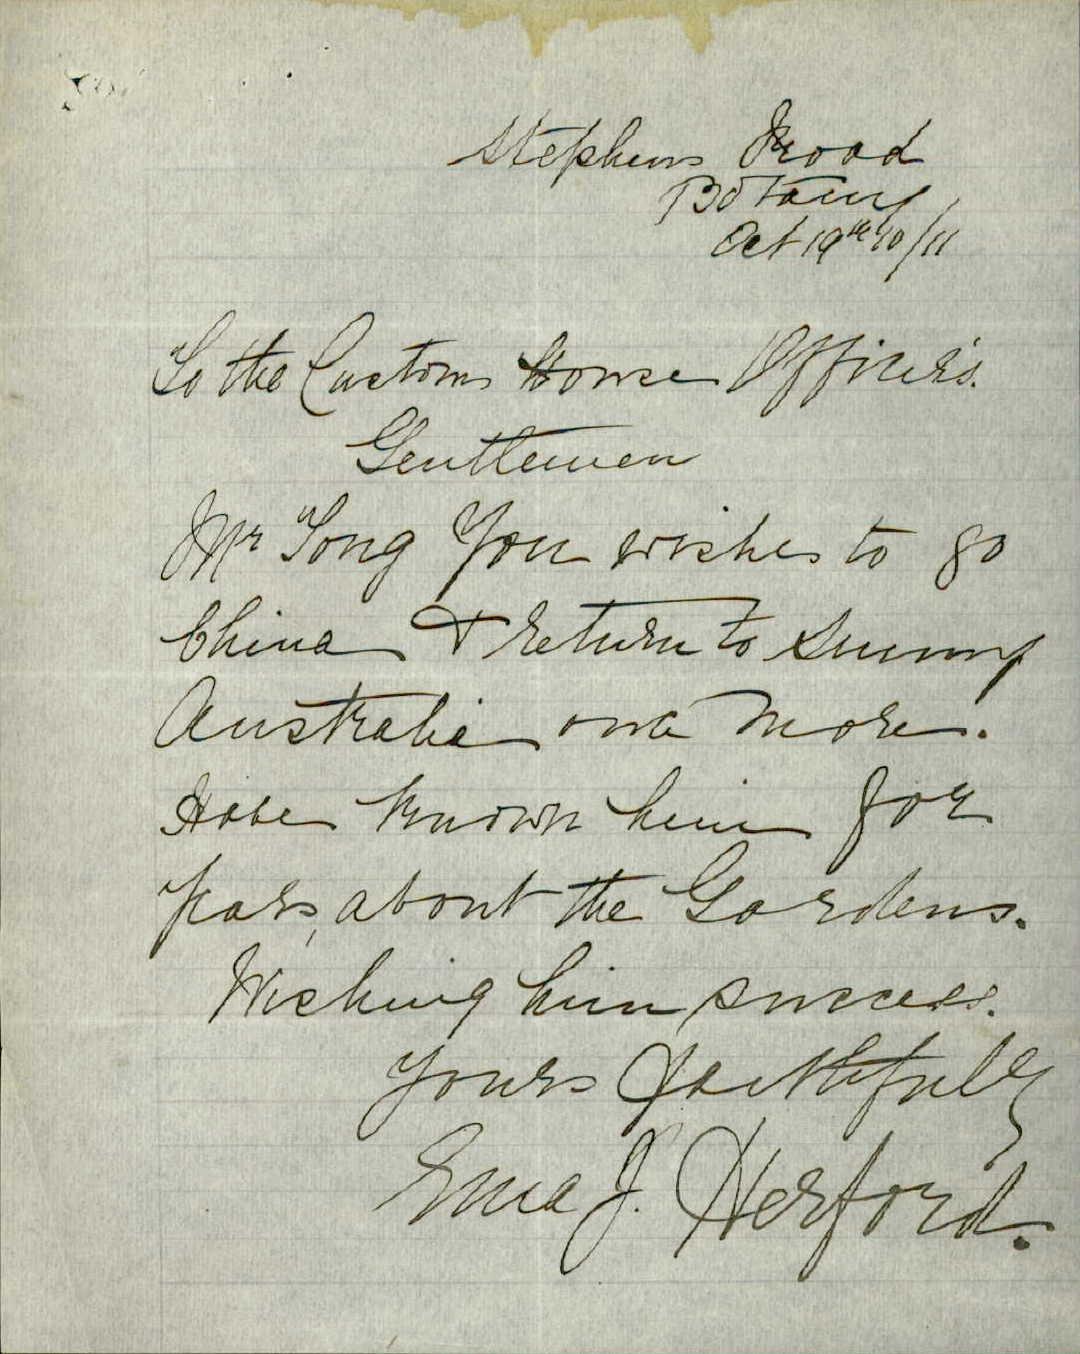 Stephens Road
Botany
Oct 19th 10/11
To the Customs House Officer's.
Gentlemen
Mr Tong You wishes to go
China & return to Sunny
Australia once more.
Have known him for
Years, about the Gardens.
Wishing him success.
Yours Faithfully
J. Herford.